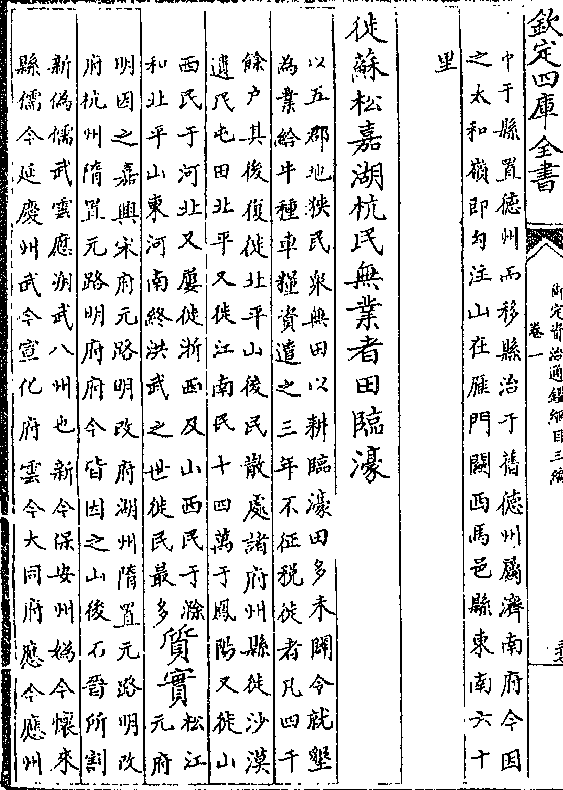 欽定四庫全書
御定資治通鑑綱目三編
卷一
中于縣置德州而移縣治于舊德州屬濟南府今因
之太和嶺即勾注山在雁門關西馬邑縣東南六十
里
徙蘇松嘉湖杭民無業者田臨濠
以五郡地狹民衆無田以耕臨濠田多未闢令就墾
為業給牛種車糧資遣之三年不征稅徙者凡四千
餘户其後復徙北平山後民散處諸府州縣徙沙漠
遺民屯田北平又徙江南民十四萬于鳳陽又徙山
西民于河北又屢徙浙西及山西民于滁
和北平山東河南終洪武之世徙民最多
質實
松江元府
明因之嘉興宋府元路明改府湖州隋置元路明改
府杭州隋置元路明府府今皆因之山後石晉所割
新媯儒武雲應朔八州也新今保安州媯今懷來
縣儒今延慶州武今宣化府雲今大同府應今應州